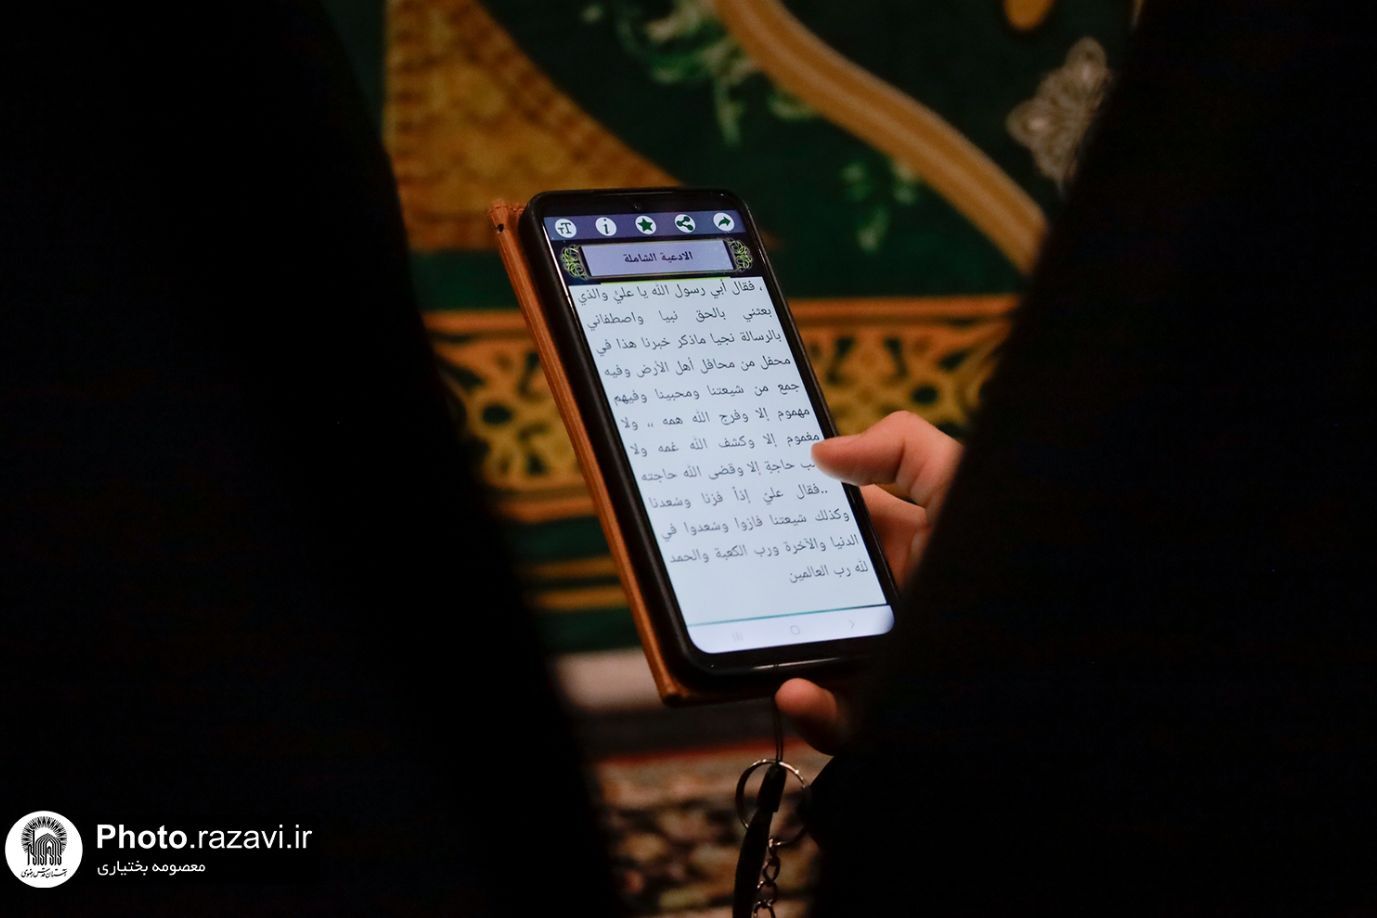 الادعية الشاملة
، فقال أبي رسول الله يا عليُ والذي
بعتني بالحق نبيا واصطفاني
بالرسالة نجيا ماذكر خبرنا هذا في
محفل من محافل أهل الأرض وفيه
جمع من شيعتنا ومحبينا وفيهم
مهموم إلا وفرج الله همه ،، ولا
مغموم إلا وكشف الله غمه ولا
حاجةِ إلا وقضى الله حاجته
..فقال عليُ إذاً فزنا وسُعدنا
وكذلك شيعتنا فازوا وسُعدوا في
الدنيا والآخرة ورب الكعبة والحمد
لله رب العالمين
Photo.razavi.ir
معصومه بختیاری
آستان قدس رضوی